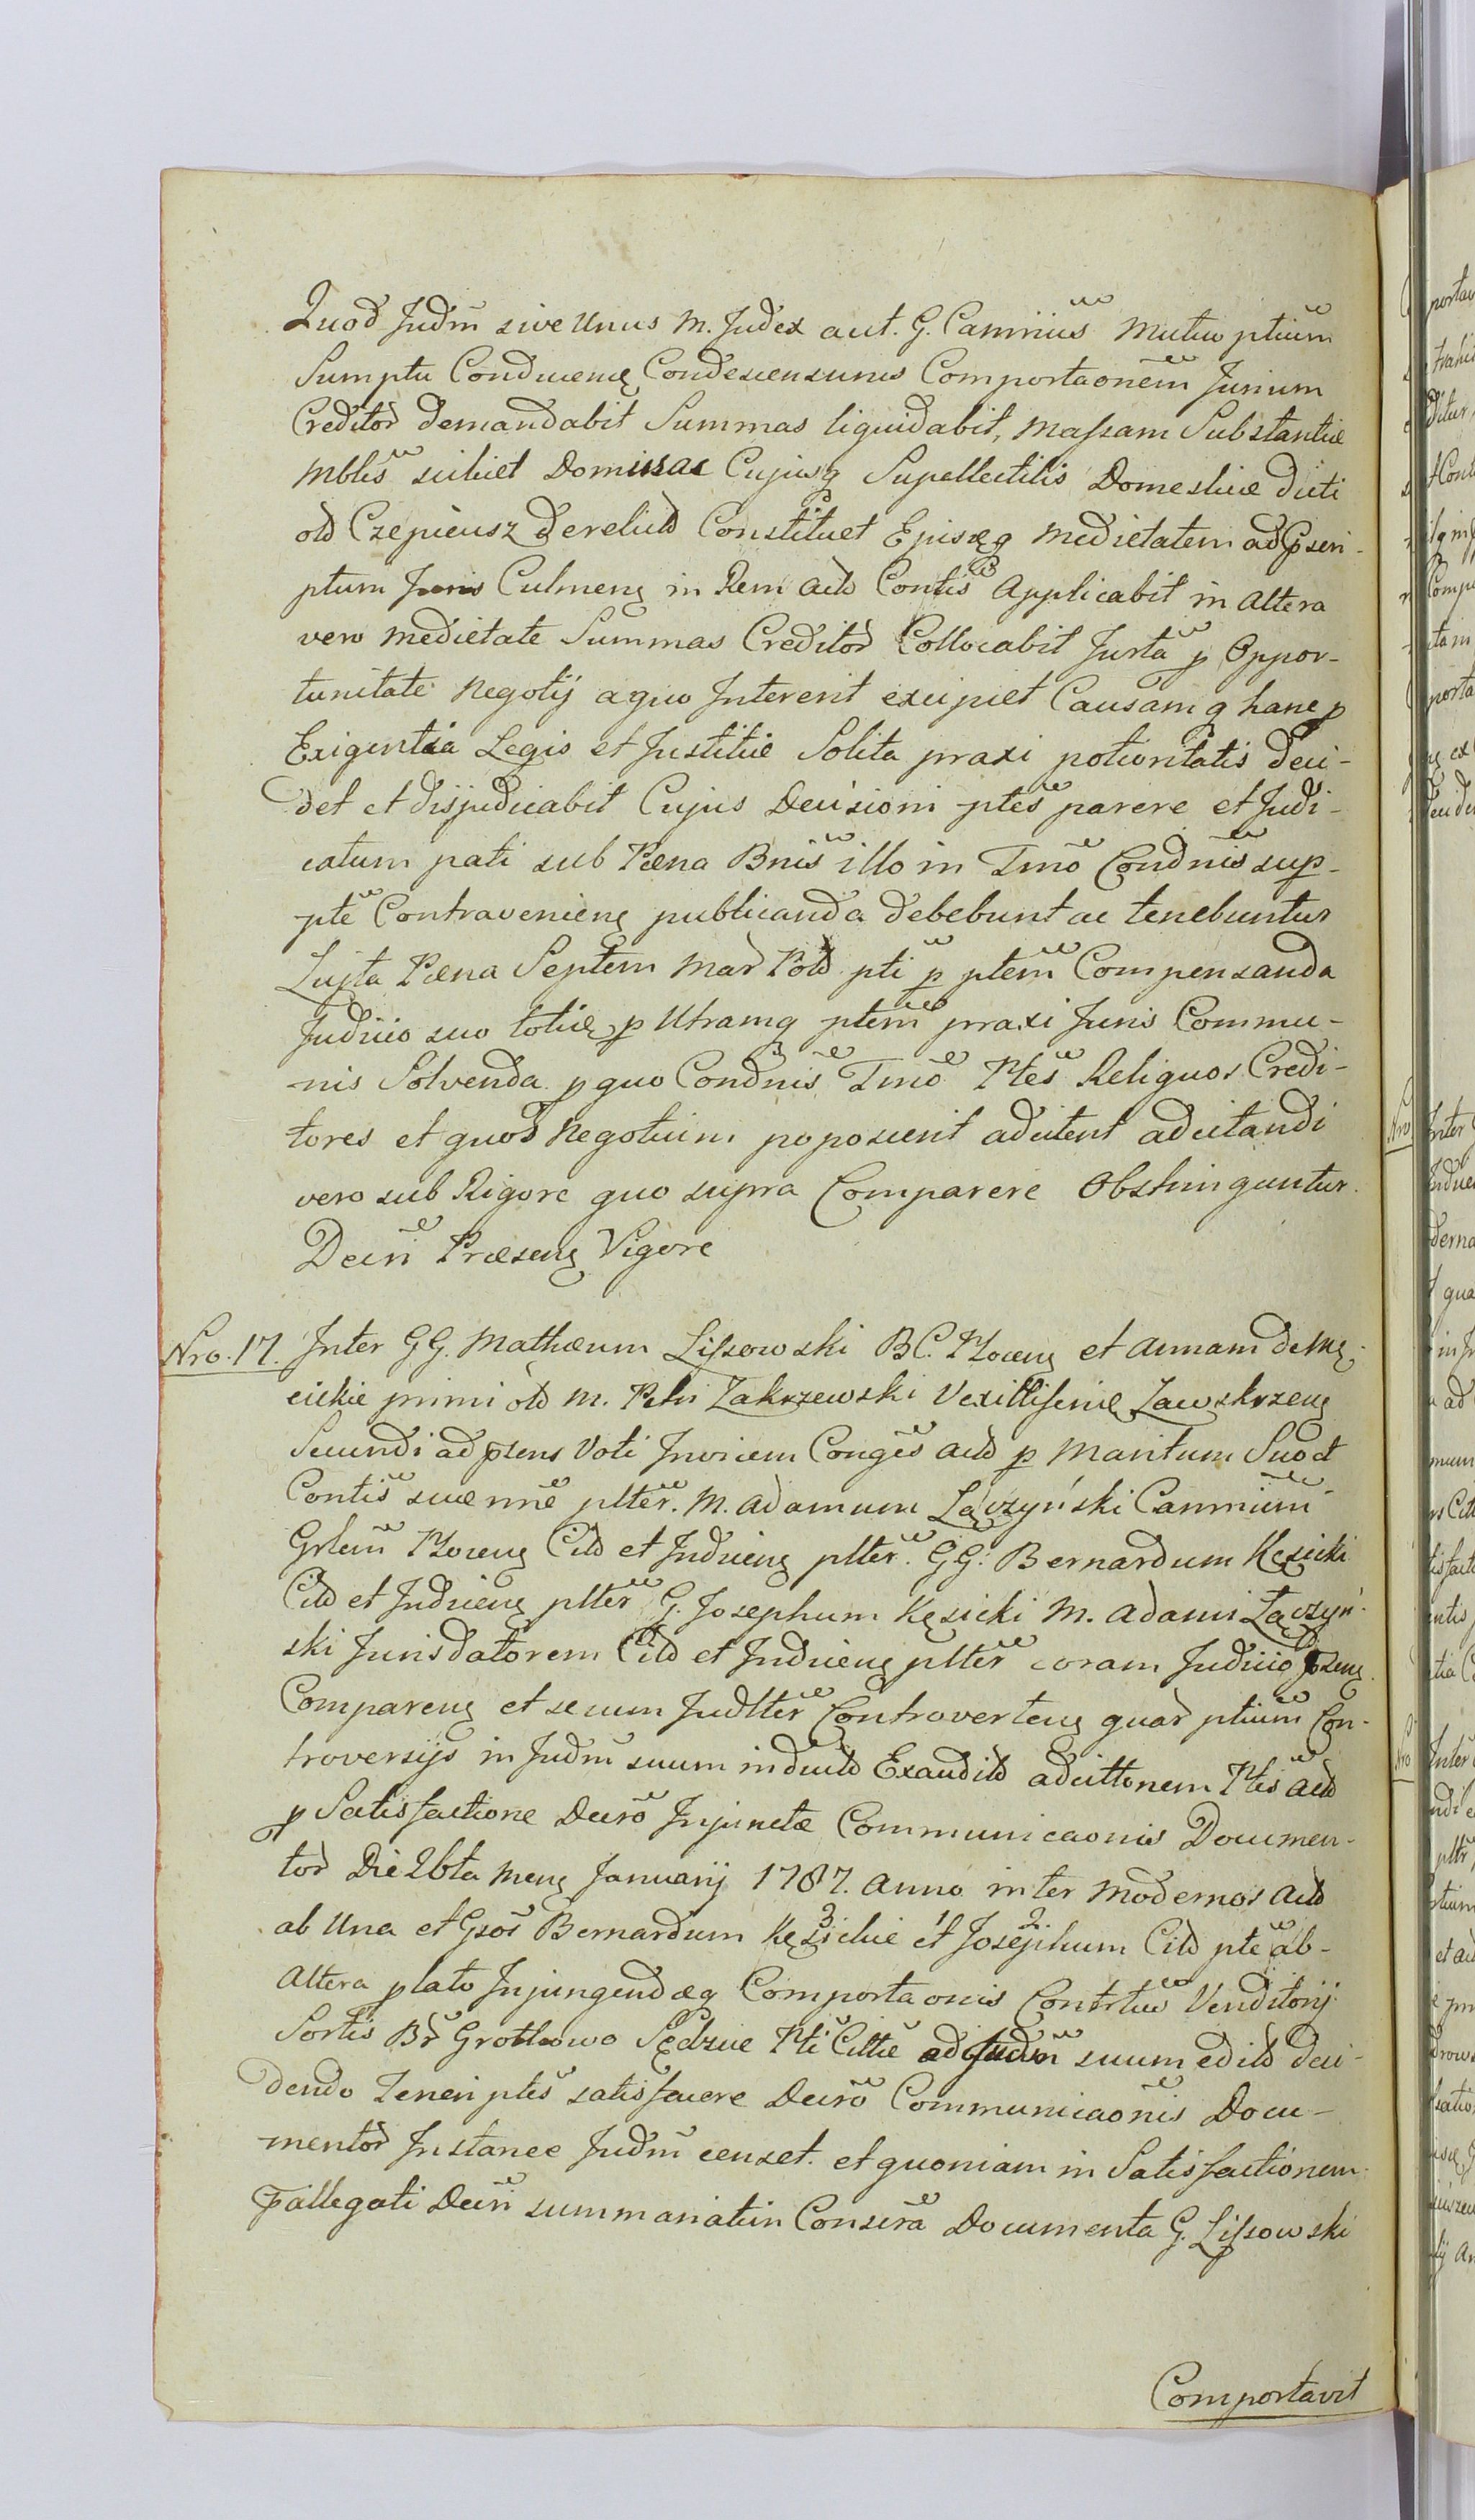 Quod Judm̃ sive Unus M. Judex aut. G. Camrius Mutuo ptium
Sumptu Conducenę Condescensurus Comportaonem Jurium
Creditor̃ demandabit Summas liquidabit, Maſsam Substantiæ
Mblis scilicet Domus ac Cujusq Supellectilis Domesticæ dicti
old Czepieusz derelictd Constituet Ejusq medietatem ad Pscri-
ptum Juris Culmenę in Rem actd Contis Applicabit in Altera
vero medietate Summas Creditor̃ Collocabit Justa p Oppor-
tunitate Negotij a quo Intererit excipiet Causamq hanc p
Exigentia Legis et Justitiæ Solita praxi potioritatis deci-
det et disjudicabit Cujus Decisioni ptes parere et Judi-
catum pati sub Pæna Bnis illo in Tmo Condnis sup
pte Contravenienę publicanda debebunt ac tenebuntur
Lujta Pæna Septem Mar̃ Pold pti p ptem Compensanda
Judicio suo totię p Utramq ptem praxi Juris Commu-
nis Solvenda p quo Condnis Tmo Ptes Reliquos Credi-
tores et quos Negotium poposcerit adcitent adcitandi
vero sub Rigore quo supra Comparere Obstringuntur.
Decri Præsenę Vigore
Nro. 17. Inter GG. Mathæum Liſsowski BC. Plocenę et Annam de Kę-
cickie primi old M. Petri Zakrzewski Vexilliferiæ Zawskrzenę
Secundi ad præsens Voti Invicem Conges actd p Maritum Suo et
Contis suæ nne plter. M. Adamum Łączyński Cammium
Grlem Plocenę Citd et Inducenę plter. GG. Bernardum Kęsicki
Citd et Inducenę plter G. Josephum Kęsicki M. Adami Łączyń-
ski Jurisdatorem Citd et Inducenę plter coram Judicio pzenę
Comparenę et secum Judlter Controvertenę quar̃ ptium Con-
troversijs in Judm̃ suum inductd Exauditd adcittonem Ptis actd
p Satisfactione Decro Injunctæ Communicaonis Documen-
tor̃ Die 26ta Menę Januarij 1787. Anno inter Modernos Actd
ab Una et Gsos Bernardum Kęsickie et Josephum Citd pte ab
Altera p lato Injungendæq Comportaonis Contrtus Venditorij
Sortis Br̃ Grotkowo Sędzice Pti Cittæ ad Judm̃ suum editd deci-
dendo Teneri ptes satisfacere Decro Communicaonis Docu-
mentor̃ Instance Judm̃ censet. et quoniam in Satisfactionem
Pallegati Decri summariatim Conscra Documenta G. Liſsowski
Comportavit